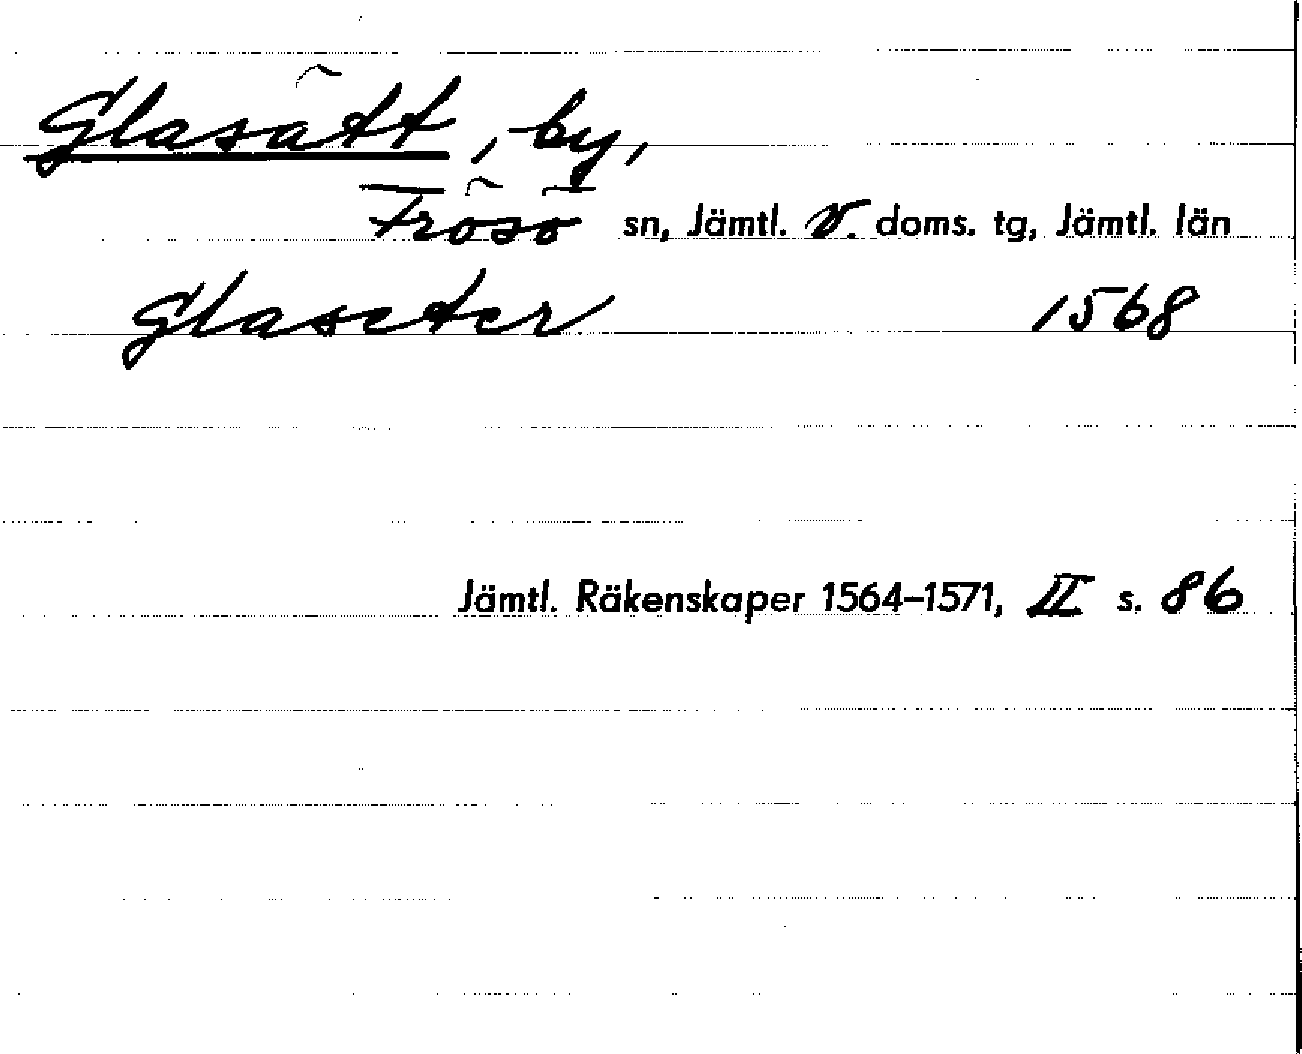 Glasätt, by,
Frösö sn, Jämtl. V. doms. tg, Jämtl. län
Glaseter 1568
Jämtl. Räkenskaper 1564-1571, II s. 86